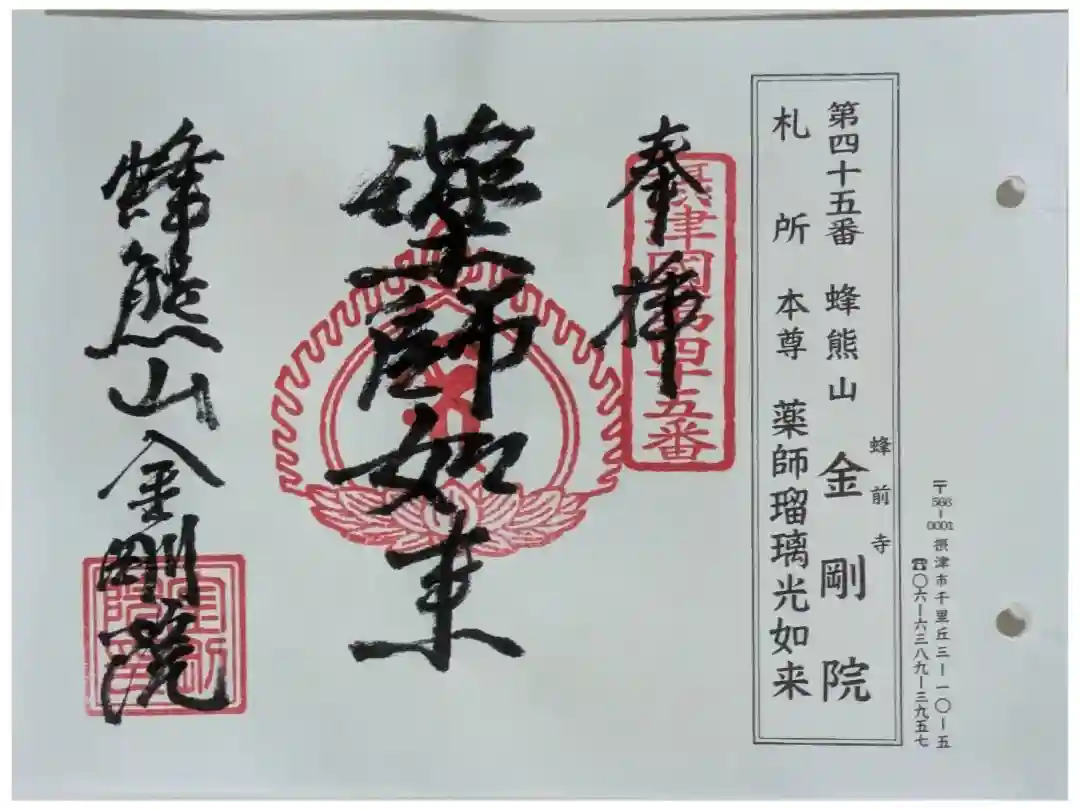 〒566-0001 摂津市千里丘三ー一〇ー五
☎〇六ー六三八九ー三九五七
第四十五番 蜂熊山 金剛院
蜂前寺
札所 本尊 薬師瑠璃光如来
奉拝
摂津國第四十五番
薬師如来
蜂熊山金剛院